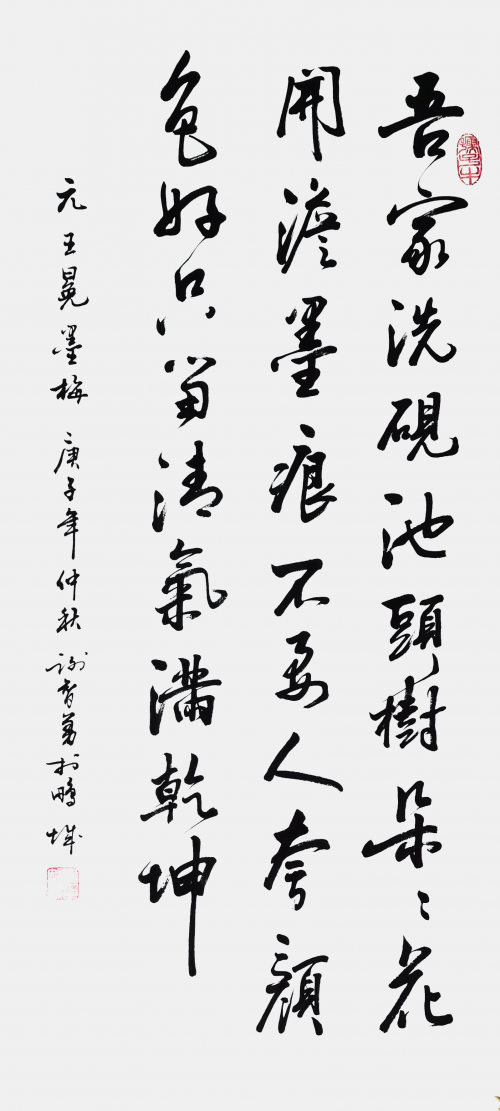 吾家洗硯池頭樹朵〻花
開澹墨痕不要人夸顏
色好只留清氣滿乾坤
元王冕墨梅 庚子年仲秋 謝智勇於鵬城